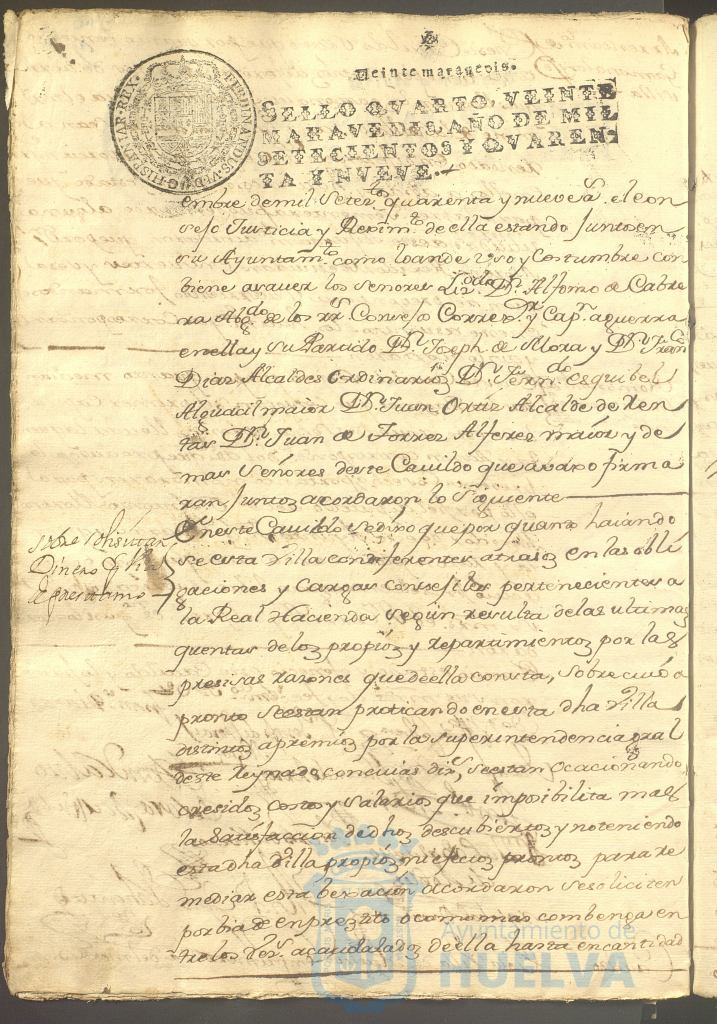 Veinte maravedis.
SELLO QVARTO, VEINTE
MARAVEDIS, AÑO DE MIL
SETECIENTOS Y QVAREN-
TA Y NVEVE.
FERDINANDUS VI D G HISPANIAR REX
embre de mil Setez.tos quarenta y nueve a.s el con
sejo Justicia y Regim.to de ella estando Juntos en
su Ayuntam.to como lo an de uso y Costumbre con
biene a saver los Señores Liz.do D.n Alfonso de Cabre
ra Ab.do de los r.s Consejos Correx.dor y Cap.n a guerra
en ella y su Partido D.n Joseph de Mora y D.n Fran.co
Diaz Alcaldes ordinarios D.n Fern.do esquibel
Alguacil maior D.n Juan Ortiz Alcalde de Ren
tas D.n Juan de Torres Alferez maior y de
mas Señores deste Cavildo que avaxo firma
ran Juntos acordaron lo Siguiente
En este Cavildo se dixo que por quanto haiando
se esta villa con diferentes atrasos en las obli
gaciones y Cargas Consejiles pertenecientes a
la Real Hacienda Segun resulta de las ultimas
quentas de los propios y repartimientos por las
presisas razones que de ella consta, sobre cuio a
pronto se estan praticando en esta dha villa
distintos apremios por la superintendencia gral
deste Reynado con cuias dix.s se estan ocacionando
cresidos costos y Salarios que imposibilita mas
la satisfaccion de dhos descubiertos y no teniendo
esta dha villa propios ni efectos promtos para re
mediar esta bexacion acordaron se soliciten
por bia de enprestito o como mas combenga en
tre los Vez.s acaudalados de ella hasta en cantidad
sobre solisitar
Dinero
de prestamo
Ayuntamiento de
HUELVA